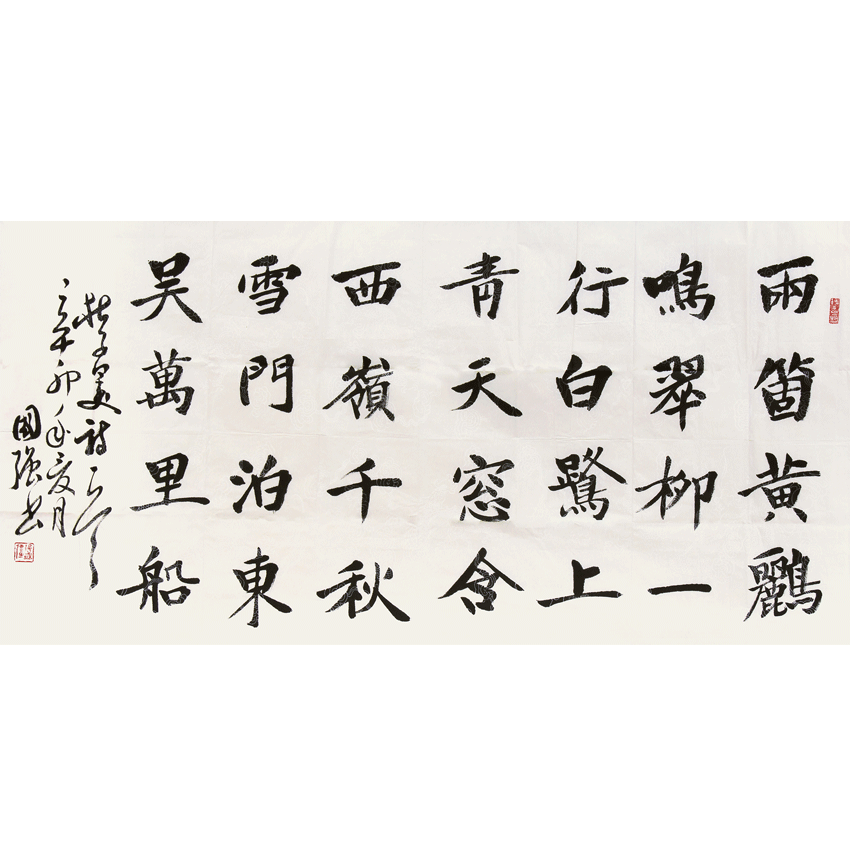 兩箇黃鸝
鳴翠柳一
行白鷺上
青天窓含
西嶺千秋
雪門泊東
吳萬里船
杜子美詩
辛卯年夏月
國強書